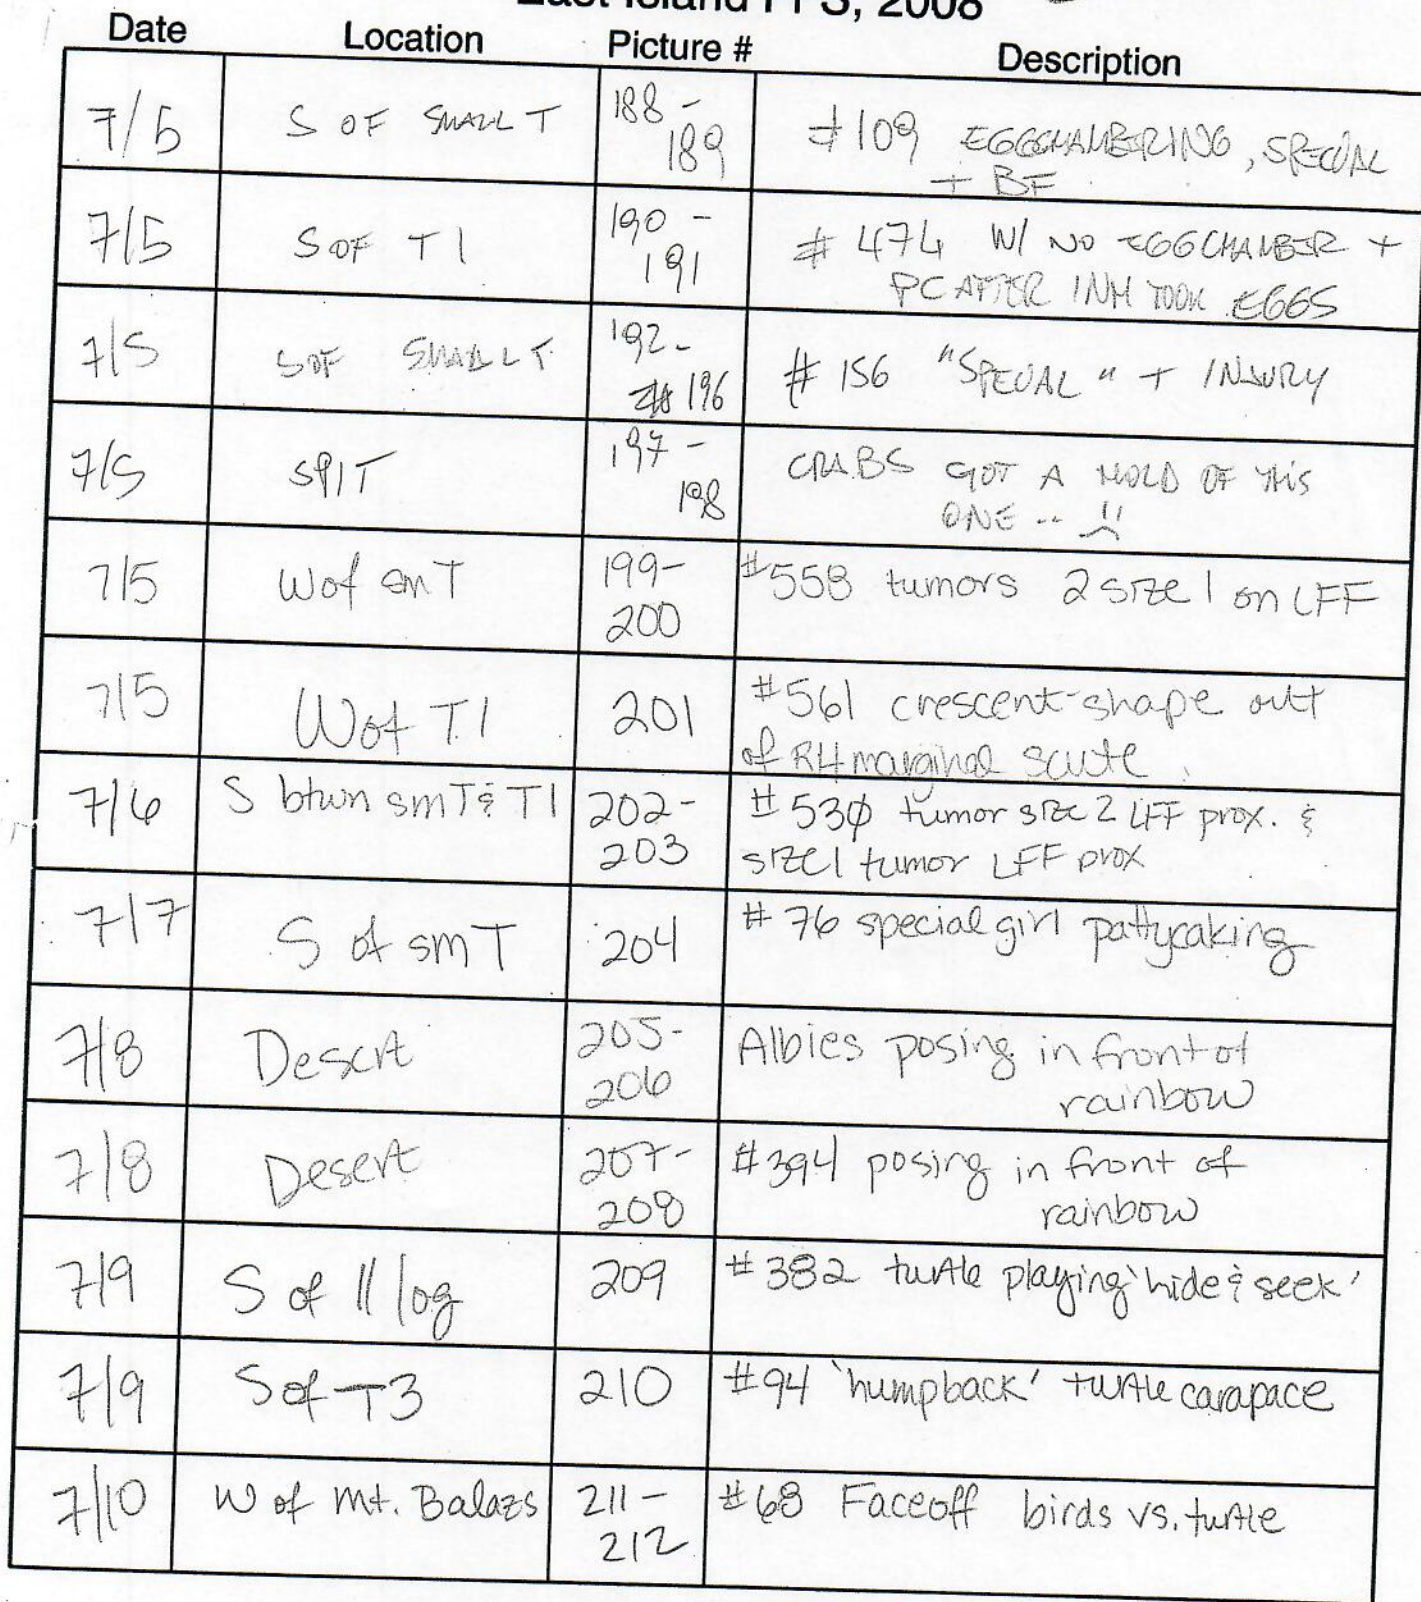 East Island FFS, 2008
Date Location Picture # Description
7/5 S OF SMALL T 188 - 189 #109 EGGCHAMBERING, SPECIAL
+ BF
7/5 S OF T1 190 - 191 # 474 W/ NO EGGCHAMBER +
PC AFTER INH TOOK EGGS
7/5 S OF SMALL T 192 - 196 # 156 "SPECIAL" + INJURY
7/5 SPIT 197 - 198 CRABS GOT A HOLD OF THIS
ONE --
7/5 W of sm T 199- 200 #558 tumors 2 size 1 on LFF
7/5 W of T.1 201 #561 crescent-shape out
of RH marginal scute.
7/6 S btwn smT & T1 202- 203 #530 tumor size 2 LFF prox. &
size 1 tumor LFF prox
7/7 S of smT 204 #76 special girl pattycaking
7/8 Desert 205- 206 Albies posing in front of
rainbow
7/8 Desert 207- 208 #394 posing in front of
rainbow
7/9 S of || log 209 #382 turtle playing 'hide & seek'
7/9 S of T3 210 #94 'humpback' turtle carapace
7/10 W of Mt. Balazs 211- 212 #68 Faceoff birds vs. turtle